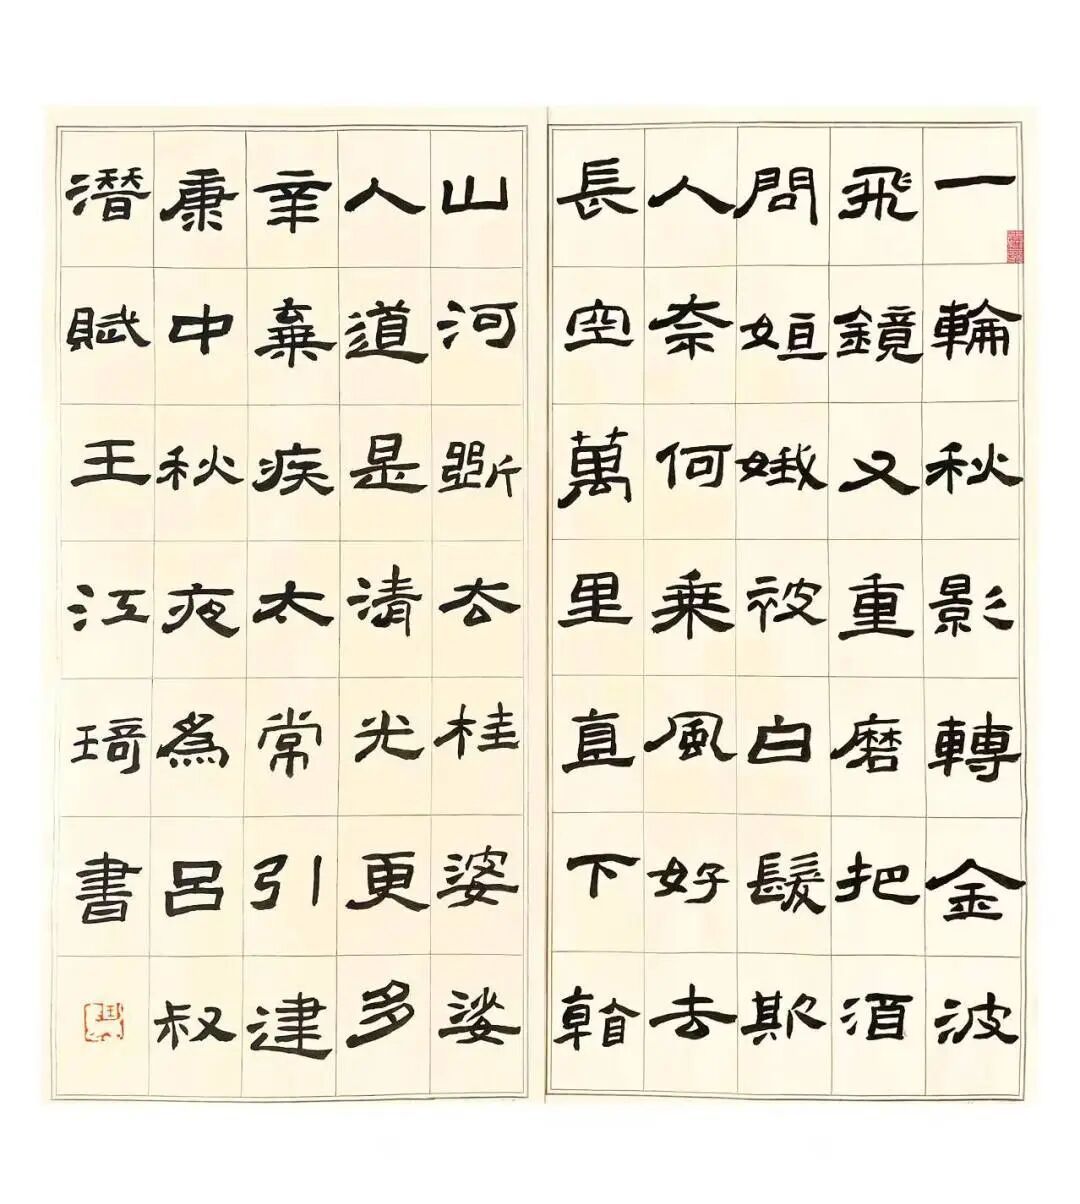 一輪秋影轉金波
飛鏡又重磨把酒
問姮娥被白髮欺
人奈何乘風好去
長空萬里直下看
山河斷去桂婆娑
人道是清光更多
辛棄疾太常引建
康中秋夜為呂叔
潛賦王江琦書